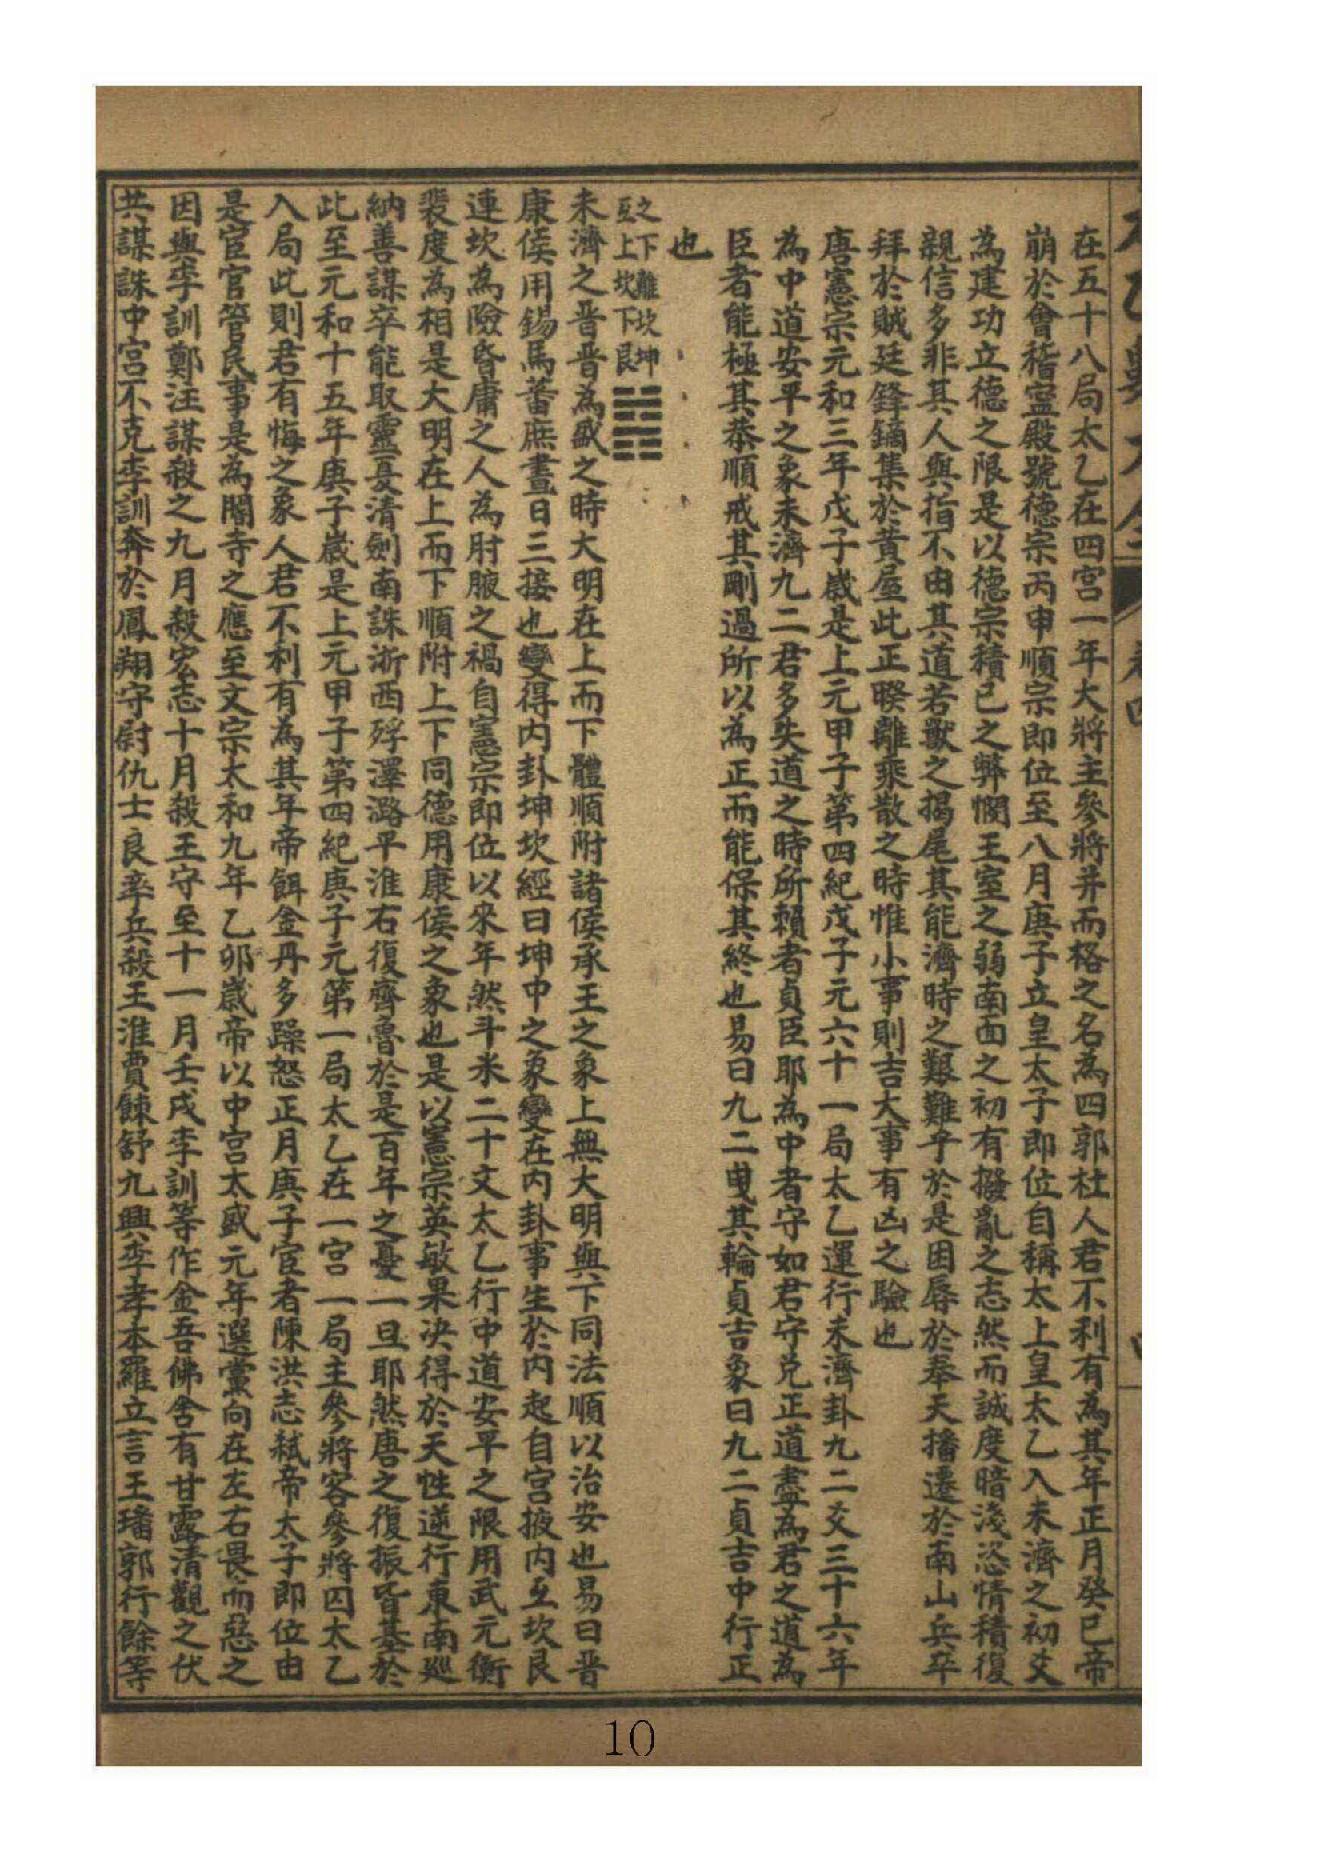 在五十八局太乙在四宮一年大將主參將并而格之名為四郭杜人君不利有為其年正月癸巳帝
崩於會稽寧殿號德宗丙申順宗即位至八月庚子立皇太子即位自稱太上皇太乙入未濟之初爻
為建功立德之限是以德宗積已之弊憫王室之弱南面之初有撥亂之志然而誠度暗淺恣情積復
親信多非其人與指不由其道若獸之揭尾其能濟時之艱難乎於是困辱於奉天播遷於南山兵卒
拜於賊廷鋒鏑集於黃屋此正暌離乘散之時惟小事則吉大事有凶之驗也
唐憲宗元和三年戊子歲是上元甲子第四紀戊子元六十一局太乙運行未濟卦九二爻三十六年
為中道安平之象未濟九二君多失道之時所賴者貞臣耶為中者守如君守兌正道盡為君之道為
臣者能極其恭順戒其剛過所以為正而能保其終也易曰九二曳其輪貞吉象曰九二貞吉中行正
也
之下離坎坤
互上坎下艮
未濟之晋晋為盛之時大明在上而下體順附諸侯承王之象上無大明與下同法順以治安也易曰晋
康侯用錫馬蕃庶晝日三接也變得內卦坤坎經曰坤中之象變在內卦事生於內起自宮掖內互坎艮
連坎為險昏庸之人為肘腋之禍自憲宗即位以來年然斗米二十文太乙行中道安平之限用武元衡
裴度為相是大明在上而下順附上下同德用康侯之象也是以憲宗英敏果决得於天性逆行東南巡
納善謀卒能取靈夏清劍南誅浙西殍澤潞平淮右復齊魯於是百年之憂一旦耶然唐之復振皆基於
此至元和十五年庚子歲是上元甲子第四紀庚子元第一局太乙在一宮一局主參將客參將囚太乙
入局此則君有悔之象人君不利有為其年帝餌金丹多躁怒正月庚子宦者陳洪志弒帝太子即位由
是宦官管民事是為閽寺之應至文宗太和九年乙卯歲帝以中宮太盛元年選黨向在左右畏而惡之
因與李訓鄭注謀殺之九月殺宏志十月殺王守至十一月壬戌李訓等作金吾佛舍有甘露清觀之伏
共謀誅中宮不克李訓奔於鳳翔守尉仇士良率兵殺王淮賈餗舒九興李孝本羅立言王璠郭行餘等
卷四
10